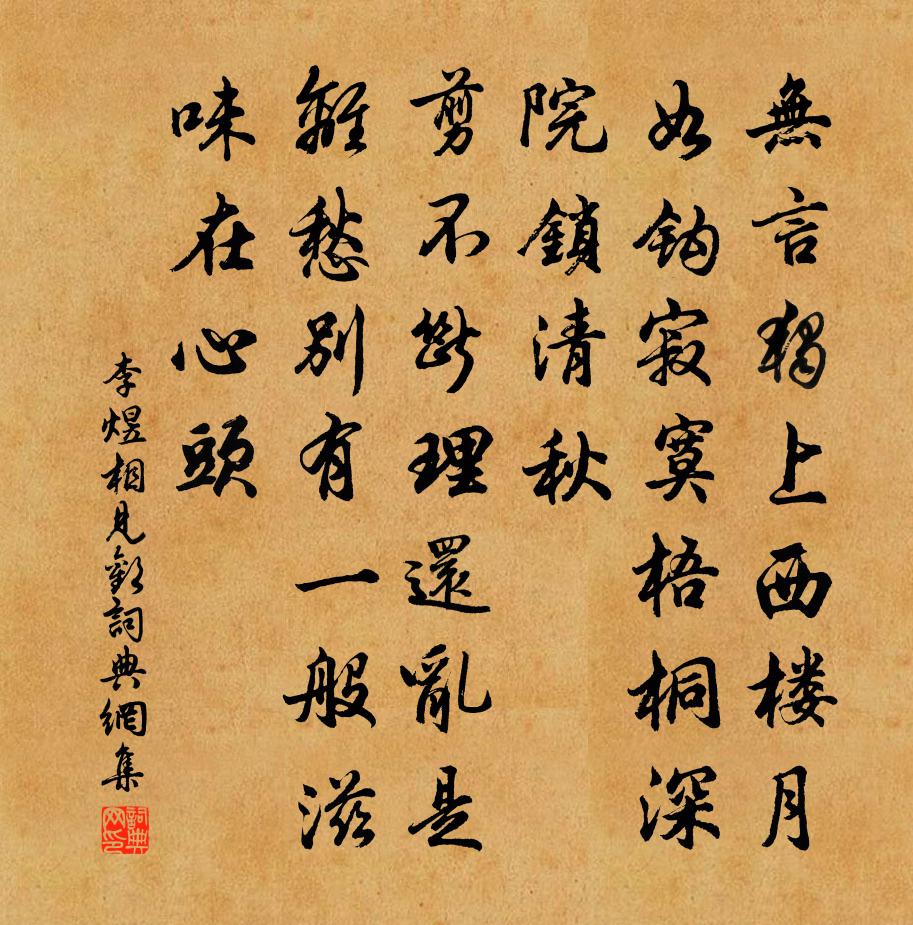 無言獨上西楼月
如鈎寂寞梧桐深
院鎖清秋
剪不斷理還亂是
離愁别有一般滋
味在心頭
李煜相見歡詞典網集
詞典網印